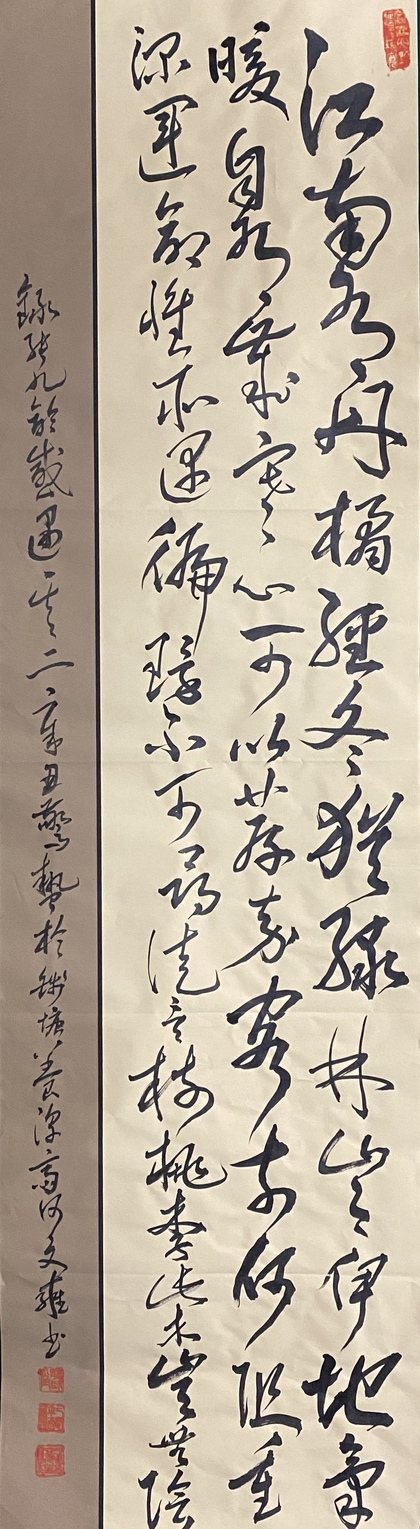 江南有丹橘經冬猶綠林豈伊地氣
暖自有歲寒心可以薦嘉客奈何阻重
深運命惟所遇循環不可尋徒言樹桃李此木豈無陰
錄張九齡感遇其二辛丑驚蟄於錢塘養深齋何文雍書